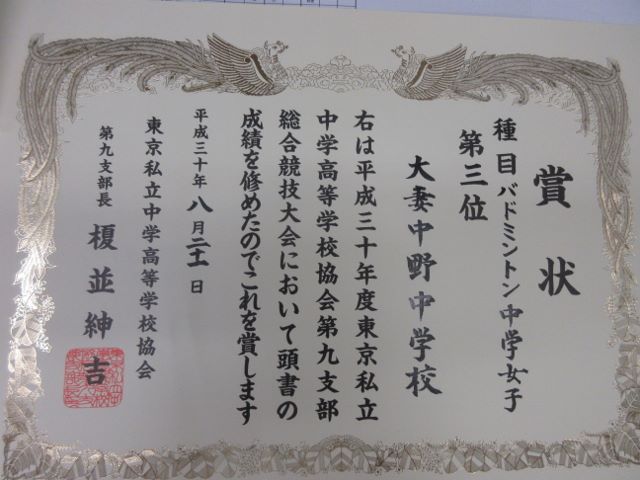 賞状
種目バドミントン中学女子
第三位
大妻中野中学校
右は平成三十年度東京私立
中学高等学校協会第九支部
総合競技大会において頭書の
成績を修めたのでこれを賞します
平成三十年八月二十一日
東京私立中学高等学校協会
第九支部長 榎並紳吉